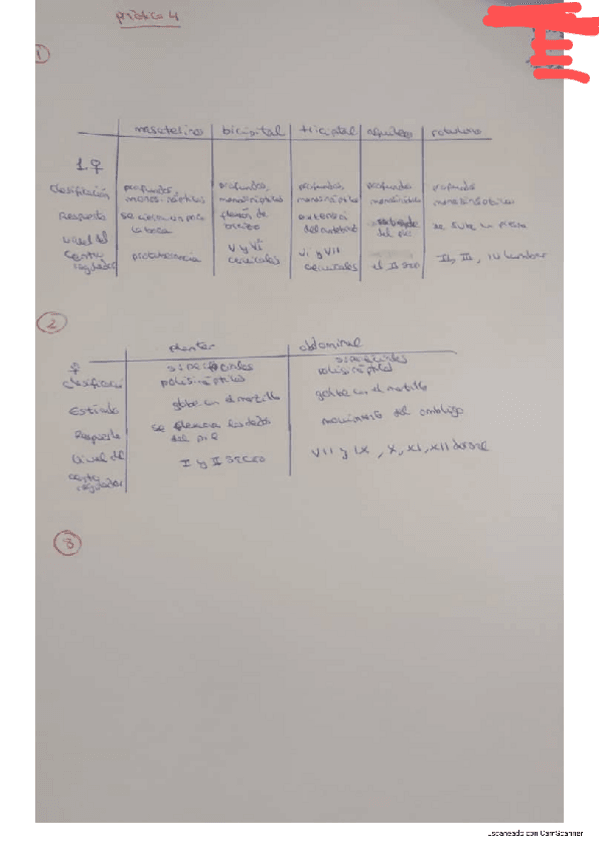 práctica 4
1
masetelino bicipital tricipital aquileo rotuliano
1. ♀
Clasificación profundos, profundos, profundos, profundo profundo
monosinápticos monosinápticos monosinápticos monosináptico monosinápticos
Respuesta se cierra un poco flexión de extensión
la boca brazo del antebrazo del pie se sube la pierna
Nivel del protuberancia V y VI VI y VII el II, III, IV lumbar
centro cervicales cervicales
regulador
2
plantar abdominal
♀ superficiales superficiales
clasificación polisinápticos polisinápticos
Estímulo golpe con el martillo golpe con el martillo
Respuesta se flexiona los dedos movimiento del ombligo
del pie
Nivel del I y II sacro VII y IX, X, XI, XII dorsal
centro
regulador
3
Escaneado con CamScanner